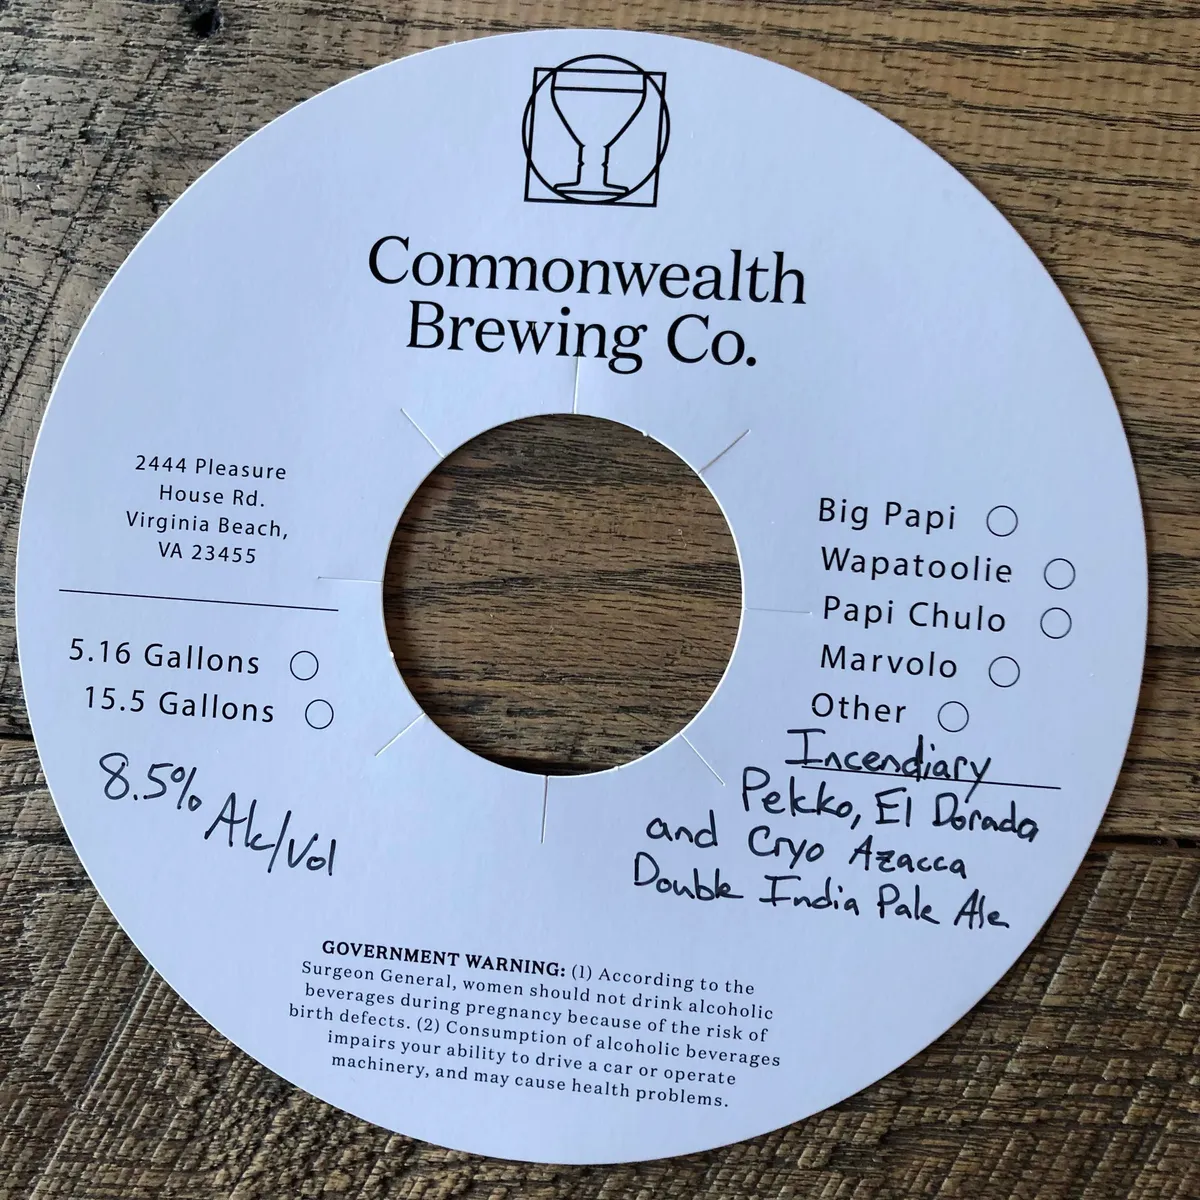 Commonwealth
Brewing Co.
2444 Pleasure
House Rd.
Virginia Beach,
VA 23455
5.16 Gallons
15.5 Gallons
8.5% Alc/Vol
Big Papi
Wapatoolie
Papi Chulo
Marvolo
Other
Incendiary
Pekko, El Dorada
and Cryo Azacca
Double India Pale Ale
GOVERNMENT WARNING: (1) According to the
Surgeon General, women should not drink alcoholic
beverages during pregnancy because of the risk of
birth defects. (2) Consumption of alcoholic beverages
impairs your ability to drive a car or operate
machinery, and may cause health problems.